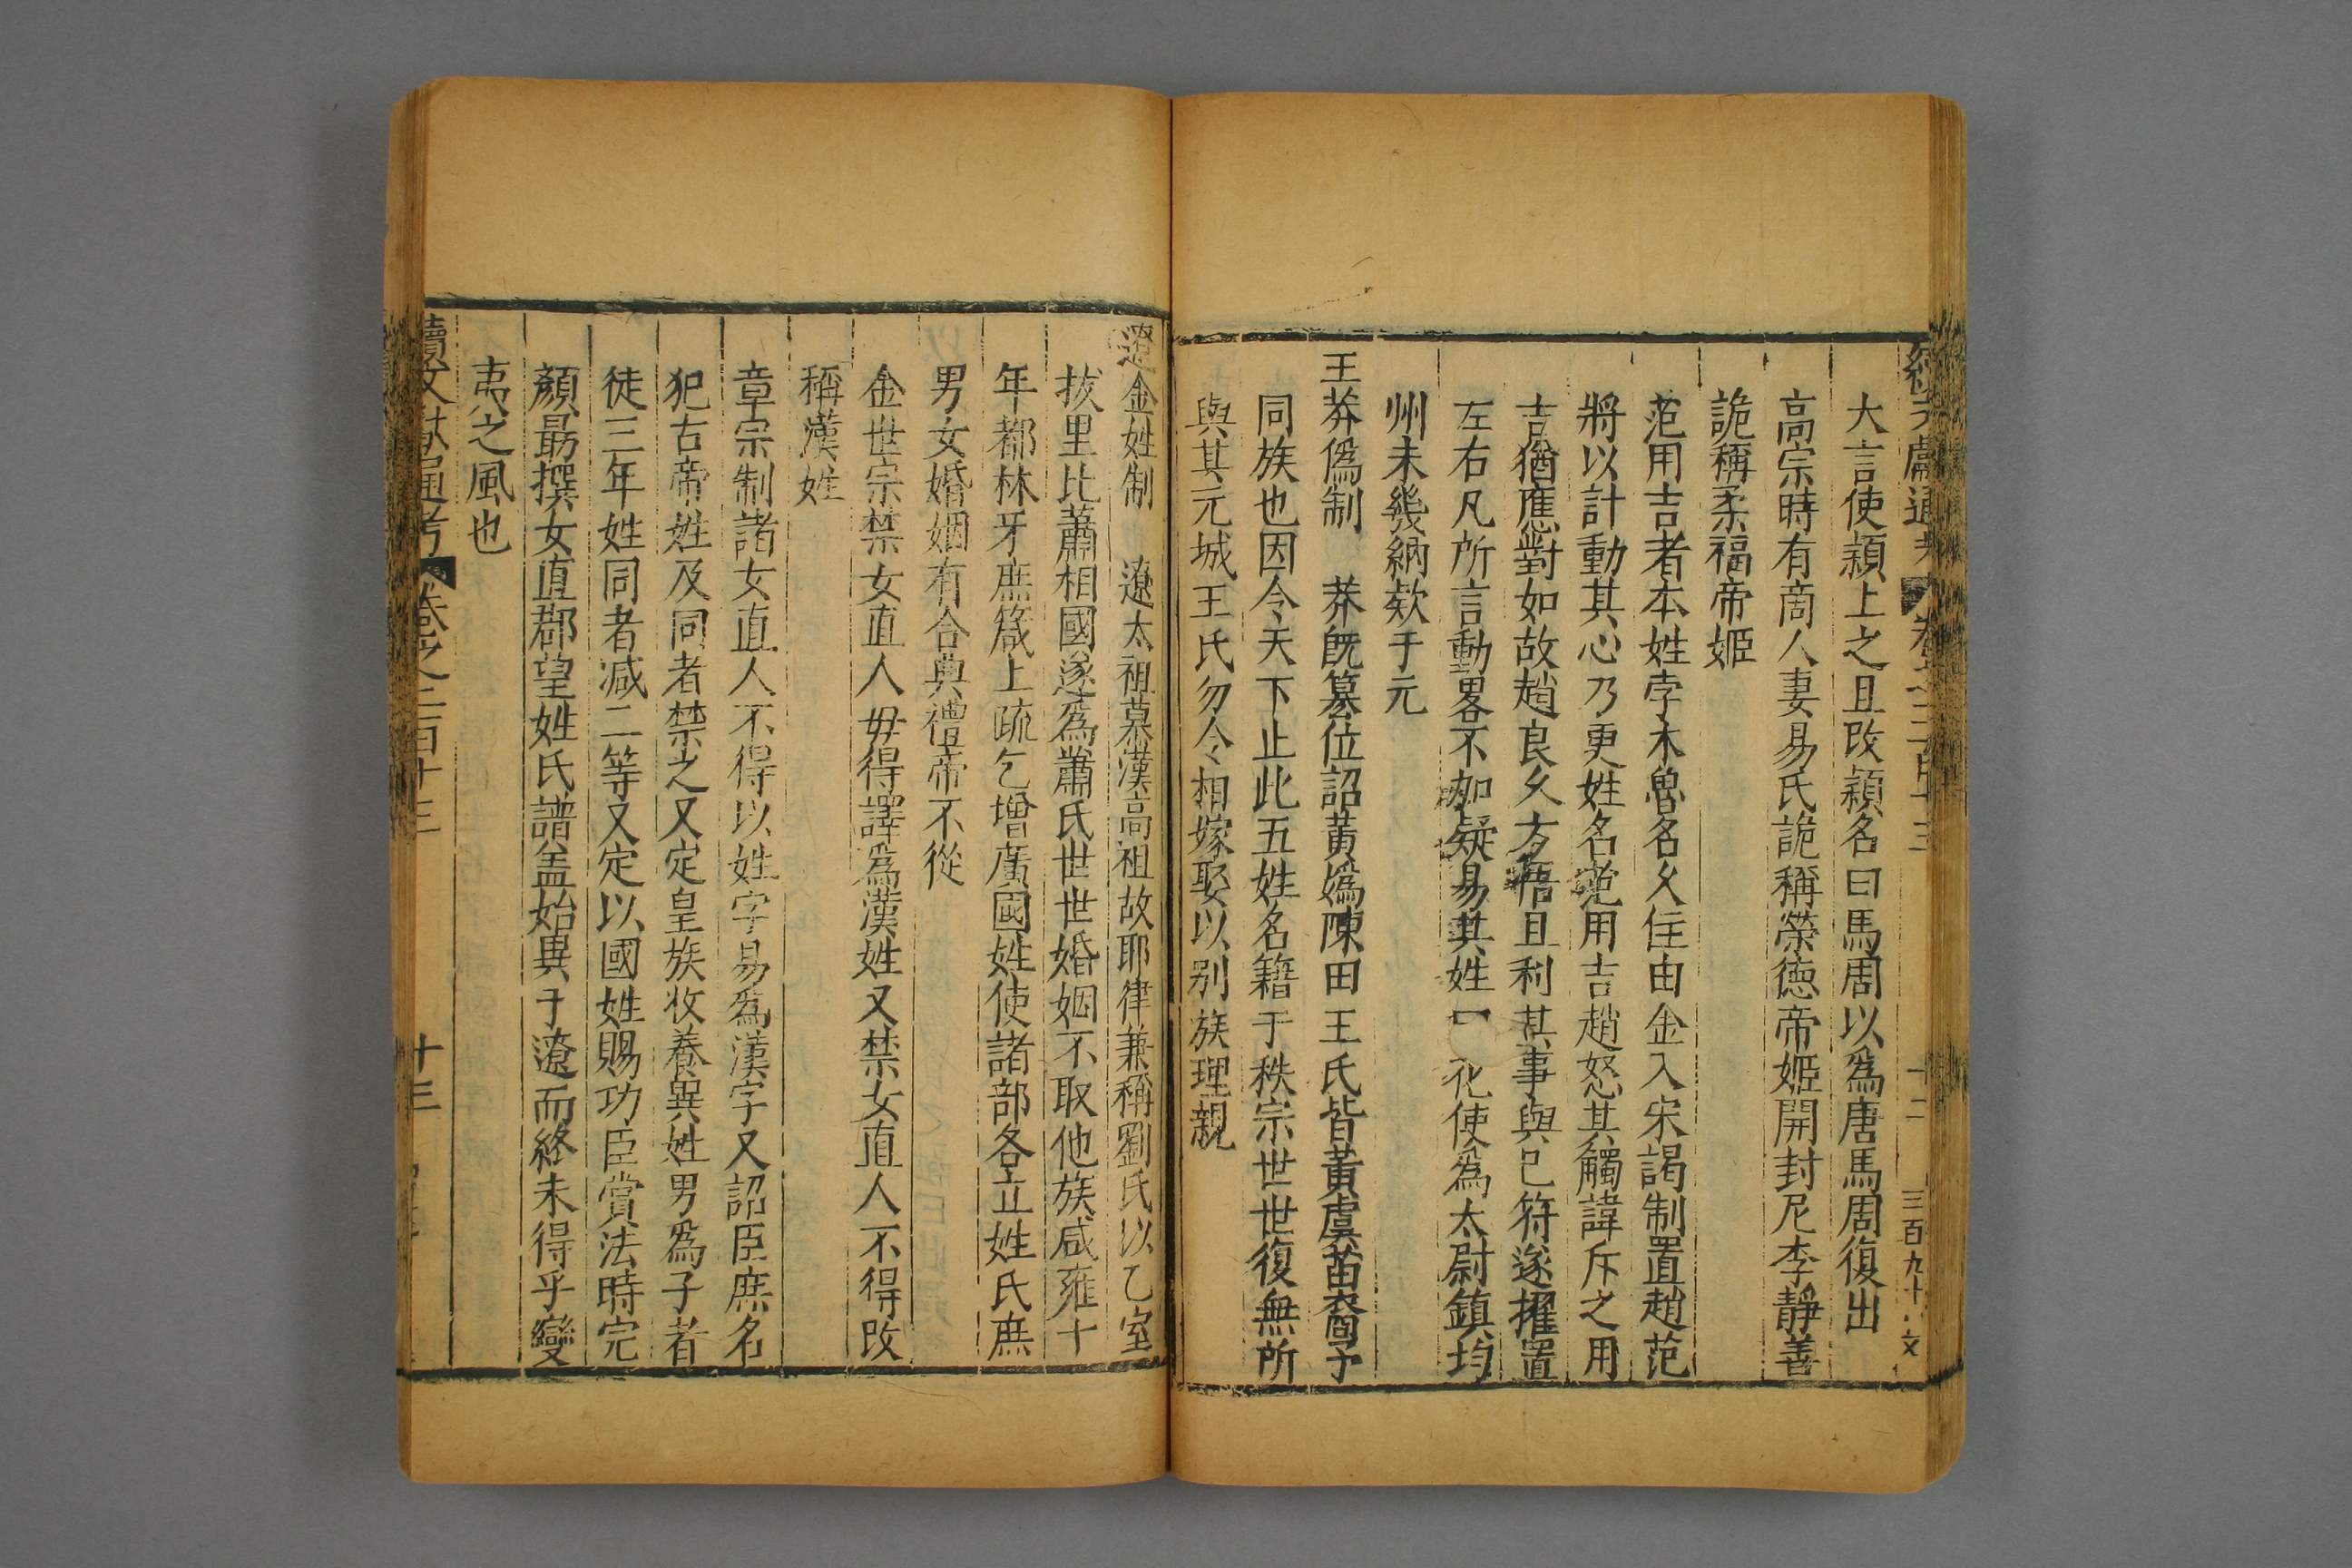 大言使頴上之且改頴名曰馬周以爲唐馬周復出
高宗時有商人妻易氏詭稱榮德帝姬開封尼李靜善
詭稱柔福帝姬
范用吉者本姓孛木魯名久住由金入宋謁制置趙范
將以計動其心乃更姓名范用吉趙怒其觸諱斥之用
吉猶應對如故趙良久方悟且利其事與已符遂擢置
左右凡所言動畧不加疑易其姓 花使爲太尉鎮均
州未幾納欵于元
王莽爲制 莽既簒位詔黃嬀陳田王氏皆黃虞苗裔予
同族也因令天下止此五姓名籍于秩宗世世復無所
與其元城王氏勿令相嫁娶以别族理親
遼金姓制 遼太祖慕漢高祖故耶律兼稱劉氏以乙室
拔里比蕭相國遂爲蕭氏世世婚姻不取他族咸雍十
年都林牙庶箴上疏乞增廣國姓使諸部各立姓氏庶
男女婚姻有合典禮帝不從
金世宗禁女直人毋得譯爲漢姓又禁女直人不得改
稱漢姓
章宗制諸女直人不得以姓字易爲漢字又詔臣庶名
犯古帝姓及同者禁之又定皇族收養異姓男爲子者
徒三年姓同者减二等又定以國姓賜功臣賞法時完
顏勗撰女直郡望姓氏譜盖始異于遼而終未得乎變
夷之風也
續文獻通考 卷之二百十三 十三